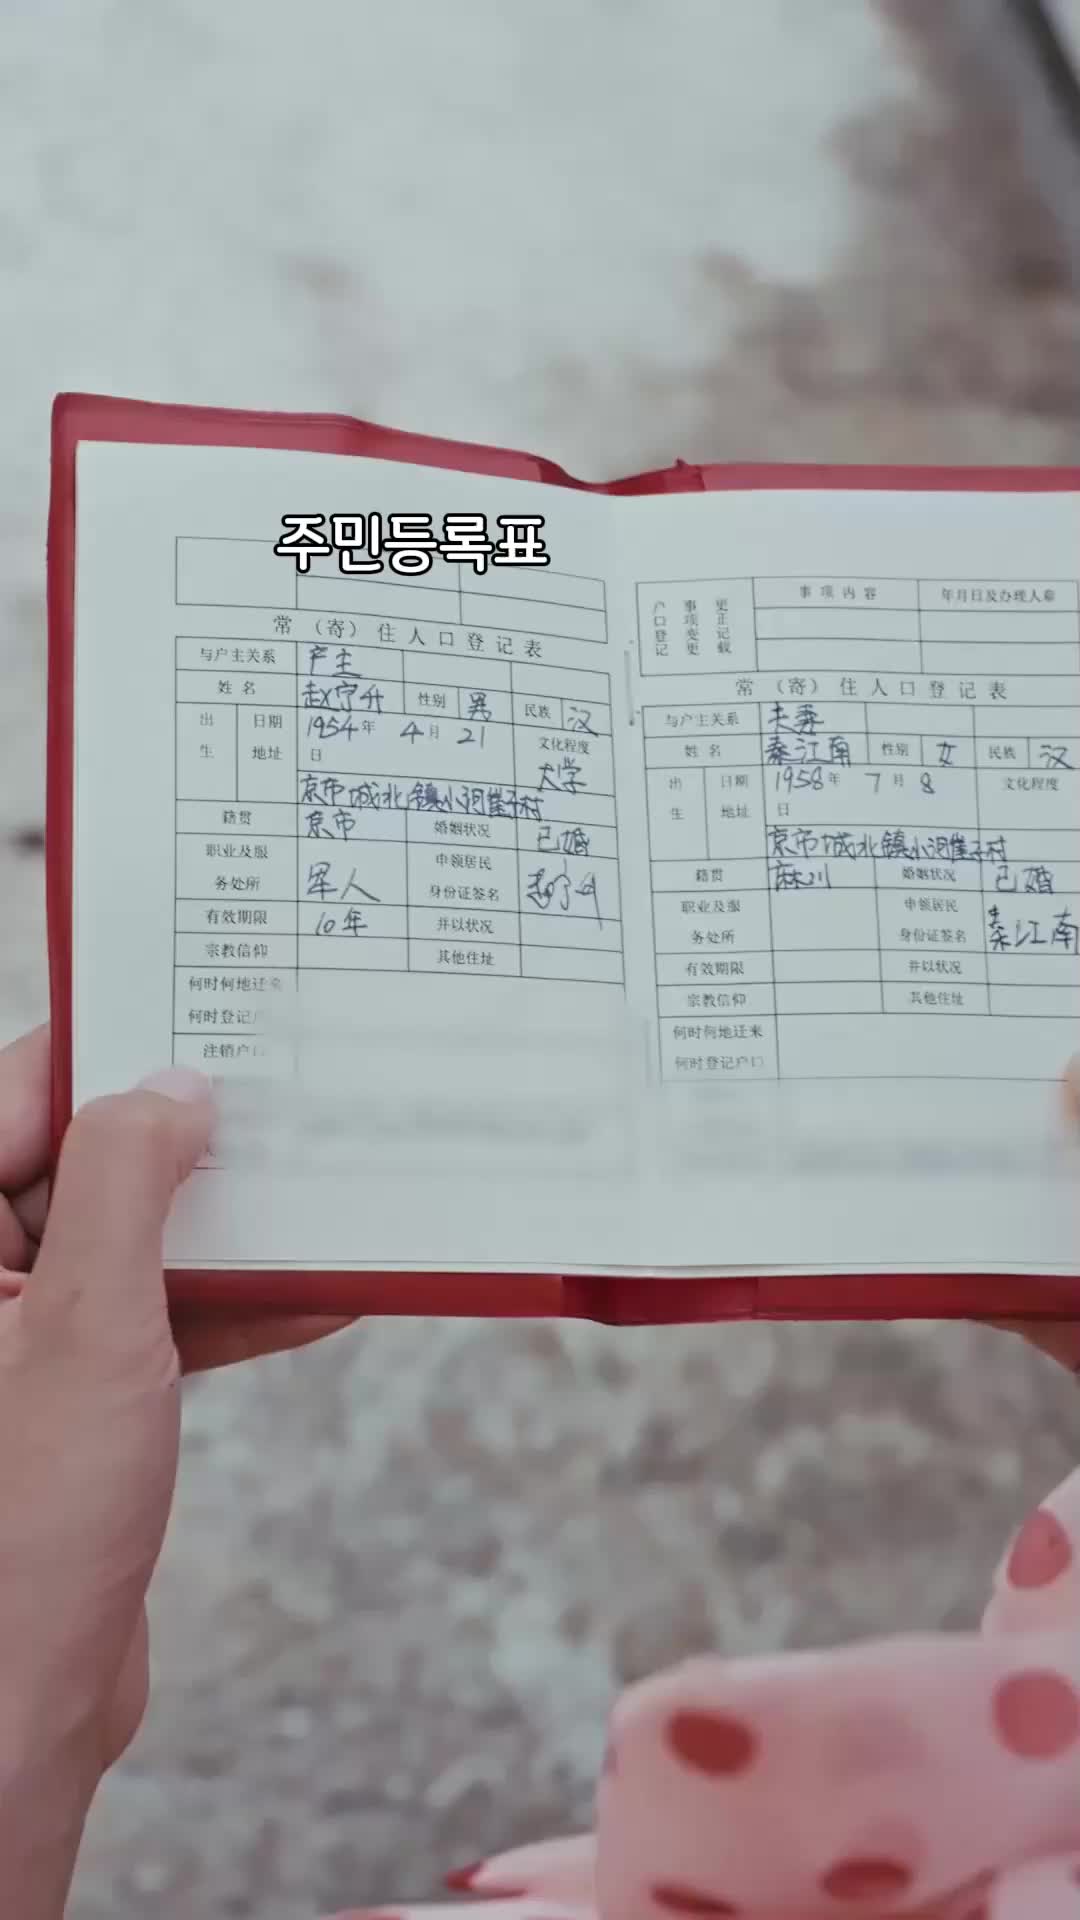 주민등록표
常（寄）住人口登记表
与户主关系 户主
姓名 赵宁升 性别 男 民族 汉
出生 日期 1954年 4月 21日 文化程度 大学
地址 京市城北镇小河崖子村
籍贯 京市 婚姻状况 已婚
职业及服务处所 军人 申领居民身份证签名
有效期限 10年 并以状况
宗教信仰 其他住址
何时何地迁来
何时登记户
注销户口
户口登记 事项变更 更正记载 事项内容 年月日及办理人章
常（寄）住人口登记表
与户主关系 夫妻
姓名 秦江南 性别 女 民族 汉
出生 日期 1958年 7月 8日 文化程度
地址 京市城北镇小河崖子村
籍贯 麻川 婚姻状况 已婚
职业及服务处所 申领居民身份证签名 秦江南
有效期限 并以状况
宗教信仰 其他住址
何时何地迁来
何时登记户口